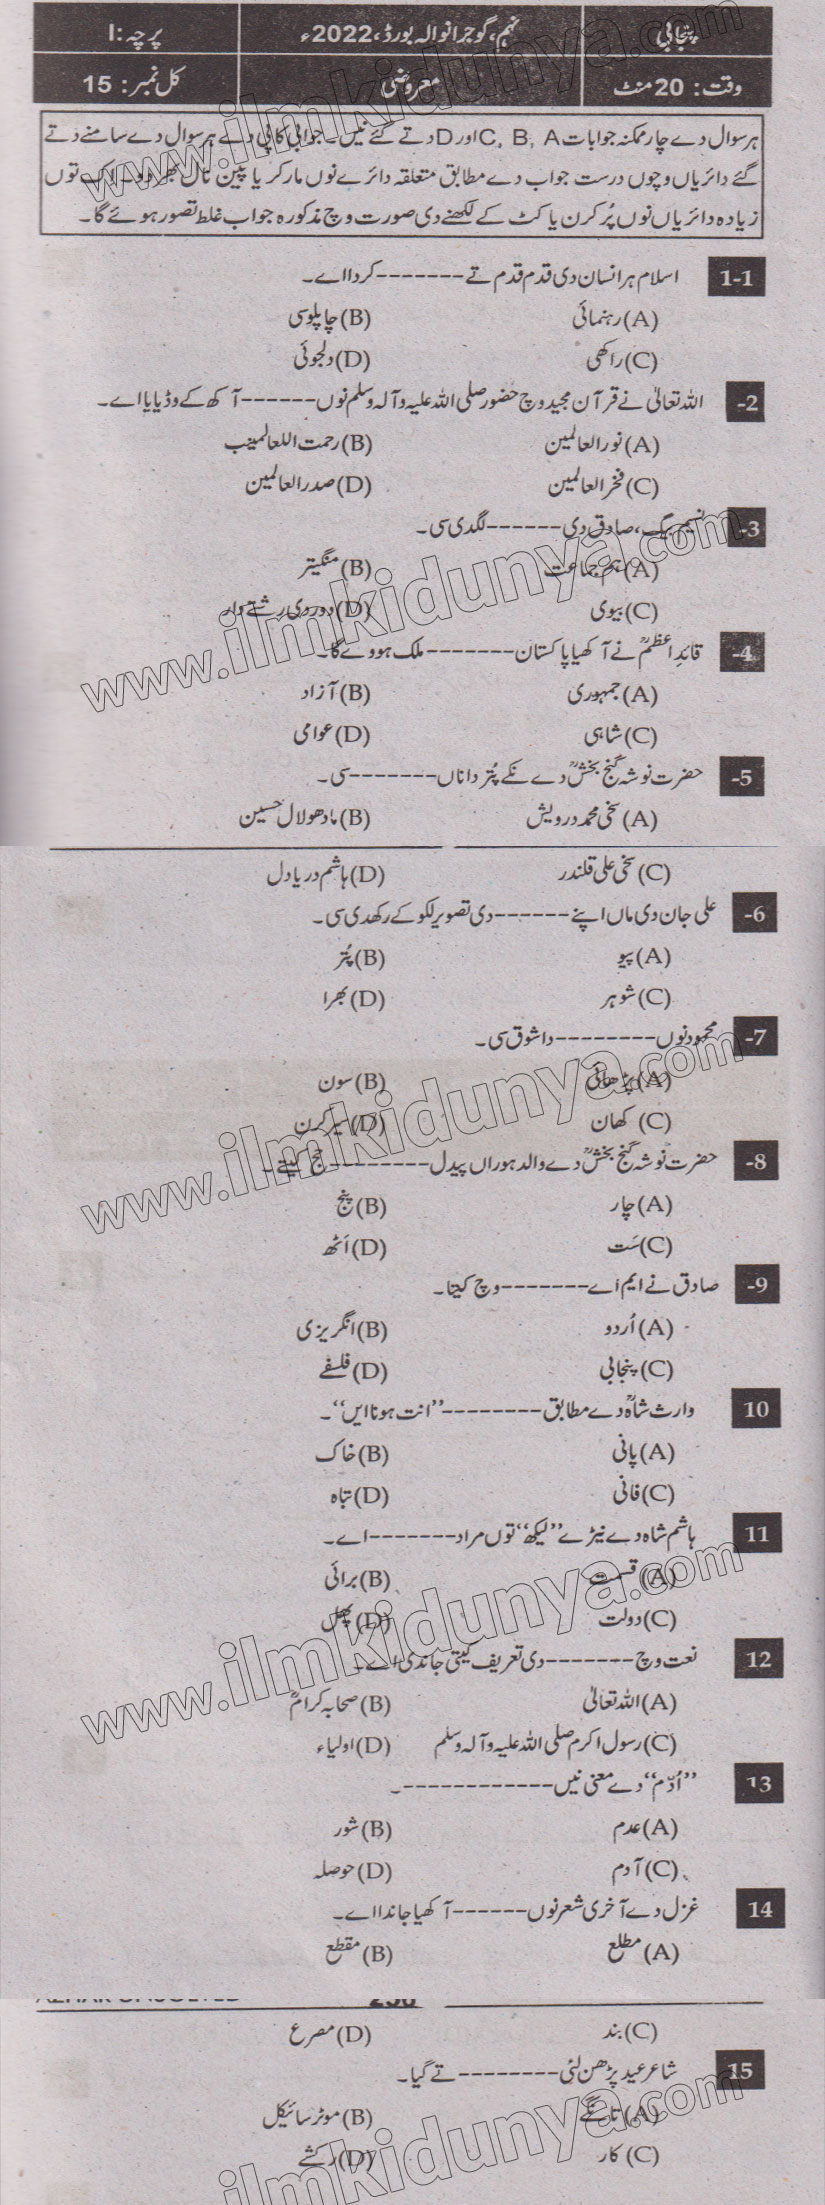 پنجابی
نہم، گوجرانوالہ بورڈ، 2022ء
پرچہ: I
وقت: 20 منٹ
معروضی
کل نمبر: 15
ہر سوال دے چار ممکنہ جوابات C, B, A اور D دتے گئے نیں۔ جوابی کاپی دے ہر سوال دے سامنے دتے
گئے دائریاں وچوں درست جواب دے مطابق متعلقہ دائرے نوں مارکر یا پین نال بھر دو۔ اک توں
زیادہ دائریاں نوں پُر کرن یا کٹ کے لکھنے دی صورت وچ مذکورہ جواب غلط تصور ہوئے گا۔
1-1 اسلام ہر انسان دی قدم قدم تے ------- کردا اے۔
(A) رہنمائی (B) چاپلوسی
(C) راکھی (D) دلجوئی
-2 اللہ تعالیٰ نے قرآن مجید وچ حضور صلی اللہ علیہ وآلہ وسلم نوں ------ آکھ کے وڈیایا اے۔
(A) نور العالمین (B) رحمت اللعالمینب
(C) فخر العالمین (D) صدر العالمین
-3 نسیم بیگ، صادق دی ------ لگدی سی۔
(A) ہم جماعت (B) منگیتر
(C) بیوی (D) دور دی رشتے دار
-4 قائدِاعظمؒ نے آکھیا پاکستان ------- ملک ہووے گا۔
(A) جمہوری (B) آزاد
(C) شاہی (D) عوامی
-5 حضرت نوشہ گنج بخشؒ دے نکے پُتر دا ناں ------- سی۔
(A) سخی محمد درویش (B) مادھو لال حسین
(C) سخی علی قلندر (D) ہاشم دریا دل
-6 علی جان دی ماں اپنے ------ دی تصویر لکو کے رکھدی سی۔
(A) پیو (B) پُتر
(C) شوہر (D) بھرا
-7 محمود نوں -------- دا شوق سی۔
(A) پڑھائی (B) سون
(C) کھان (D) سیر کرن
-8 حضرت نوشہ گنج بخشؒ دے والد ہوراں پیدل -------- حج کیتے۔
(A) چار (B) پنج
(C) سَت (D) اَٹھ
-9 صادق نے ایم اے ------- وچ کیتا۔
(A) اُردو (B) انگریزی
(C) پنجابی (D) فلسفے
10 وارث شاہؒ دے مطابق -------- ”انت ہونا ایں“۔
(A) پانی (B) خاک
(C) فانی (D) تباہ
11 ہاشم شاہ دے نیڑے ”لیکھ“ توں مراد ------- اے۔
(A) قسمت (B) برائی
(C) دولت (D) پھل
12 نعت وچ ------- دی تعریف کیتی جاندی اے۔
(A) اللہ تعالیٰ (B) صحابہ کرامؓ
(C) رسول اکرم صلی اللہ علیہ وآلہ وسلم (D) اولیاء
13 ”اُدّم“ دے معنی نیں ------------۔
(A) عدم (B) شور
(C) آدم (D) حوصلہ
14 غزل دے آخری شعر نوں ------ آکھیا جاندا اے۔
(A) مطلع (B) مقطع
(C) بند (D) مصرع
15 شاعر عید پڑھن لئی -------- تے گیا۔
(A) تانگے (B) موٹر سائیکل
(C) کار (D) رکشے
www.ilmkidunya.com
www.ilmkidunya.com
www.ilmkidunya.com
www.ilmkidunya.com
www.ilmkidunya.com